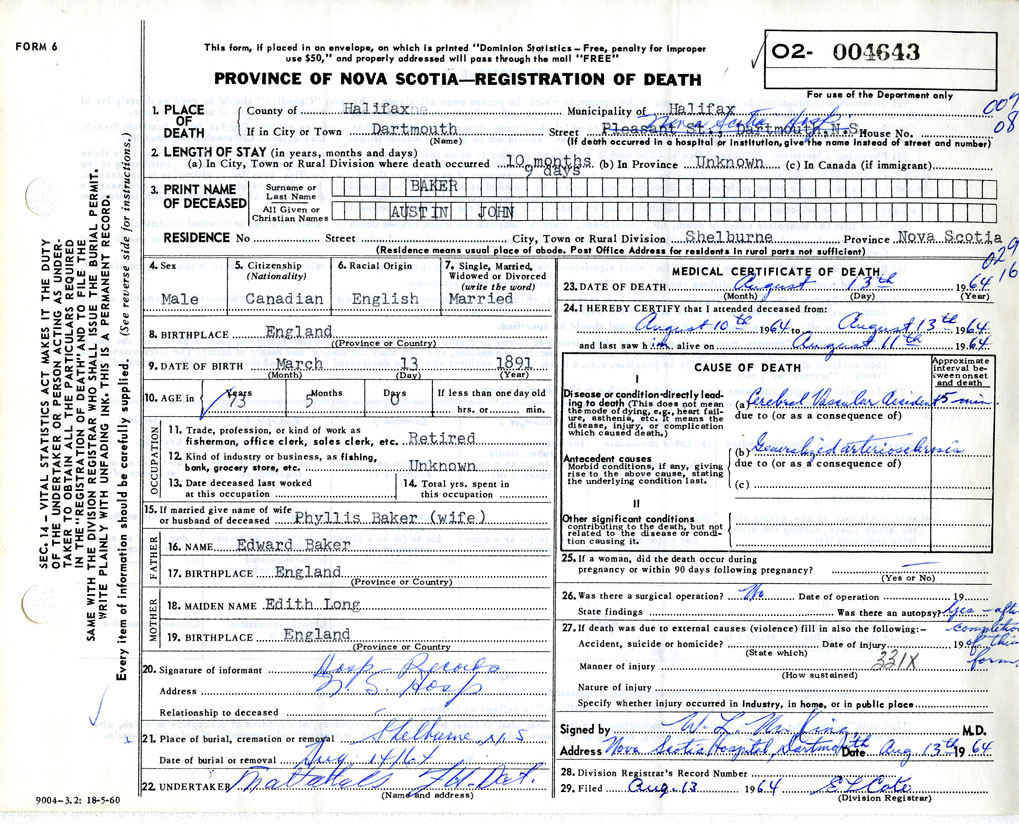 FORM 6
This form, if placed in an envelope, on which is printed "Dominion Statistics – Free, penalty for improper
use $50," and properly addressed will pass through the mail "FREE"
PROVINCE OF NOVA SCOTIA—REGISTRATION OF DEATH
02- 004643
For use of the Department only
1. PLACE OF DEATH
County of Halifax Municipality of Halifax
If in City or Town Dartmouth Street Pleasant St., Dartmouth, N.S. House No.
Nova Scotia Hosp
(Name) (If death occurred in a hospital or institution, give the name instead of street and number)
009
08
2. LENGTH OF STAY (in years, months and days)
(a) In City, Town or Rural Division where death occurred 10 months 9 days (b) In Province Unknown (c) In Canada (if immigrant)
3. PRINT NAME OF DECEASED
Surname or Last Name BAKER
All Given or Christian Names AUSTIN JOHN
RESIDENCE No Street City, Town or Rural Division Shelburne Province Nova Scotia
(Residence means usual place of abode. Post Office Address for residents in rural parts not sufficient)
029
16
4. Sex
Male
5. Citizenship (Nationality)
Canadian
6. Racial Origin
English
7. Single, Married, Widowed or Divorced (write the word)
Married
8. BIRTHPLACE England
(Province or Country)
9. DATE OF BIRTH March 13 1891
(Month) (Day) (Year)
10. AGE in Years 73 Months 5 Days 0 If less than one day old
hrs. or min.
OCCUPATION
11. Trade, profession, or kind of work as
fisherman, office clerk, sales clerk, etc. Retired
12. Kind of industry or business, as fishing,
bank, grocery store, etc. Unknown
13. Date deceased last worked
at this occupation
14. Total yrs. spent in
this occupation
15. If married give name of wife
or husband of deceased Phyllis Baker (wife)
FATHER
16. NAME Edward Baker
17. BIRTHPLACE England
(Province or Country)
MOTHER
18. MAIDEN NAME Edith Long
19. BIRTHPLACE England
(Province or Country)
20. Signature of informant Hosp Records
Address N. S. Hosp
Relationship to deceased
21. Place of burial, cremation or removal Shelburne, N.S
Date of burial or removal Aug 14/64
22. UNDERTAKER Mattatals F.H. Dart.
(Name and address)
9004-3.2: 18-5-60
MEDICAL CERTIFICATE OF DEATH
23. DATE OF DEATH August 13th 1964
(Month) (Day) (Year)
24. I HEREBY CERTIFY that I attended deceased from:
August 10th 1964 to August 13th 1964
and last saw him alive on August 11th 1964
CAUSE OF DEATH
Approximate interval between onset and death
I
Disease or condition directly leading to death (This does not mean
the mode of dying, e.g., heart failure, asthenia, etc. It means the
disease, injury, or complication
which caused death.)
(a) Cerebral Vascular Accident 5 min.
due to (or as a consequence of)
Antecedent causes
Morbid conditions, if any, giving
rise to the above cause, stating
the underlying condition last.
(b) Generalized arteriosclerosis
due to (or as a consequence of)
(c)
II
Other significant conditions
contributing to the death, but not
related to the disease or condition causing it.
25. If a woman, did the death occur during
pregnancy or within 90 days following pregnancy? —
(Yes or No)
26. Was there a surgical operation? No Date of operation 19
State findings Was there an autopsy? Yes – after completion of this form
27. If death was due to external causes (violence) fill in also the following:–
Accident, suicide or homicide? Date of injury 19
(State which)
331X
Manner of injury
(How sustained)
Nature of injury
Specify whether injury occurred in Industry, in home, or in public place
Signed by M.D.
Address Nova Scotia Hospital, Dartmouth Date Aug 13th 1964
28. Division Registrar's Record Number
29. Filed Aug. 13 1964
(Division Registrar)
SEC. 14 – VITAL STATISTICS ACT MAKES IT THE DUTY
OF THE UNDERTAKER OR PERSON ACTING AS UNDERTAKER TO OBTAIN ALL THE PARTICULARS REQUIRED
IN THE "REGISTRATION OF DEATH" AND TO FILE THE
SAME WITH THE DIVISION REGISTRAR WHO SHALL ISSUE THE BURIAL PERMIT.
WRITE PLAINLY WITH UNFADING INK. THIS IS A PERMANENT RECORD.
Every item of information should be carefully supplied. (See reverse side for instructions.)